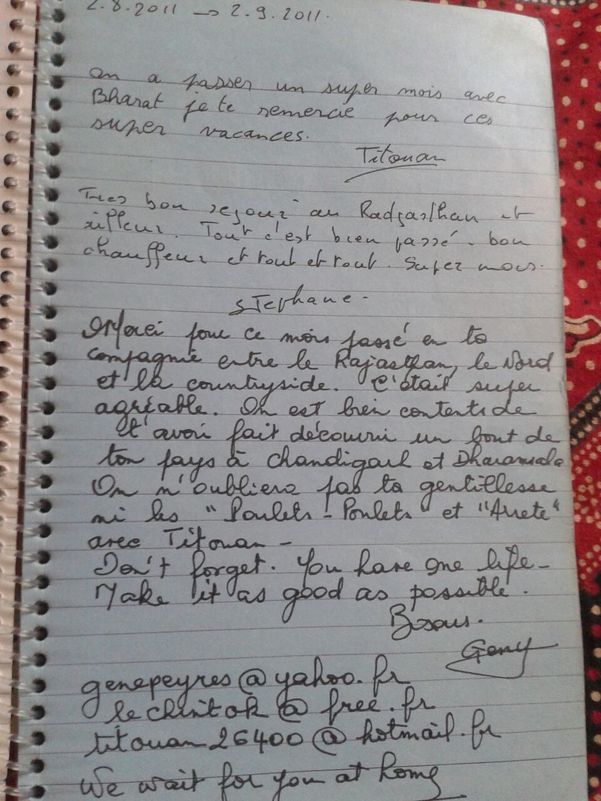 2.8.2011 → 2.9.2011.
on a passer un super mois avec
Bharat je te remercie pour ces
super vacances.
Titouan
Tres bon sejour au Radjasthan et
ailleur. Tout c'est bien passé. bon
chauffeur et tout et tout. Super mois.
Stephane.
Merci pour ce mois passé en ta
compagnie entre le Rajasthan, le Nord
et la countryside. C'était super
agréable. On est bien contents de
t'avoir fait découvrir un bout de
ton pays à Chandigarh et Dharamsala
On n'oubliera pas ta gentillesse
ni les "Poulets-Poulets" et "Arrete"
avec Titouan -
Don't forget. You have one life -
Make it as good as possible.
Bisous.
Geny
genepeyres@yahoo.fr
lechintok@free.fr
titouan26400@hotmail.fr
We wait for you at home